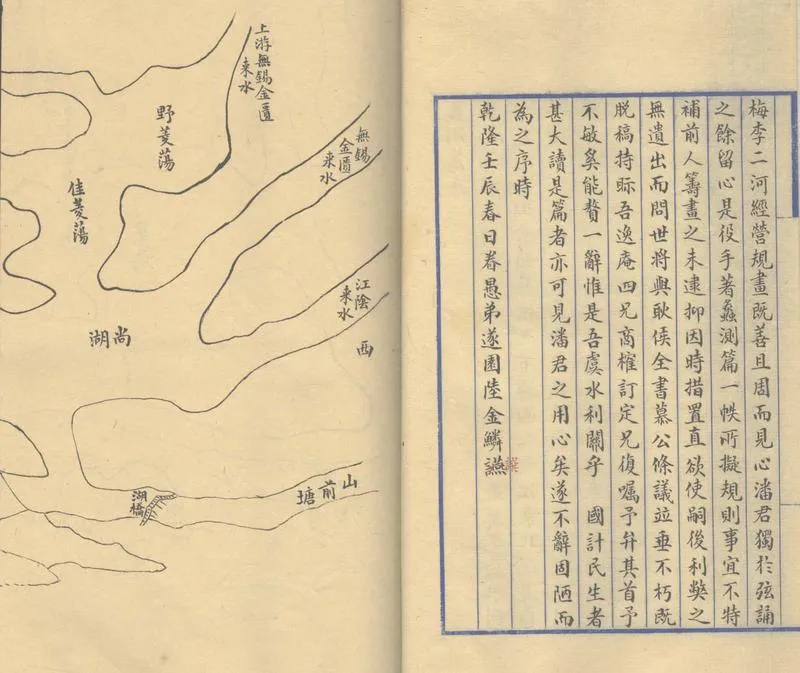 梅李二河經營規畫既善且周而見心潘君獨於弦誦
之餘留心是役手著蠡測篇一帙所擬規則事宜不特
補前人籌畫之未逮抑因時措置直欲使嗣後利獘之
無遺出而問世將與耿侯全書慕公條議並垂不朽既
脱稿持眎吾逸庵四兄商榷訂定兄復囑予弁其首予
不敏奚能贅一辭惟是吾虞水利關乎 國計民生者
甚大讀是篇者亦可見潘君之用心矣遂不辭固陋而
為之序時
乾隆壬辰春日眷愚弟遂園陸金鱗
上游無錫金匱
来水
野菱蕩
無錫
金匱
来水
佳菱蕩
江陰
来水
西
尚湖
山前塘
湖橋